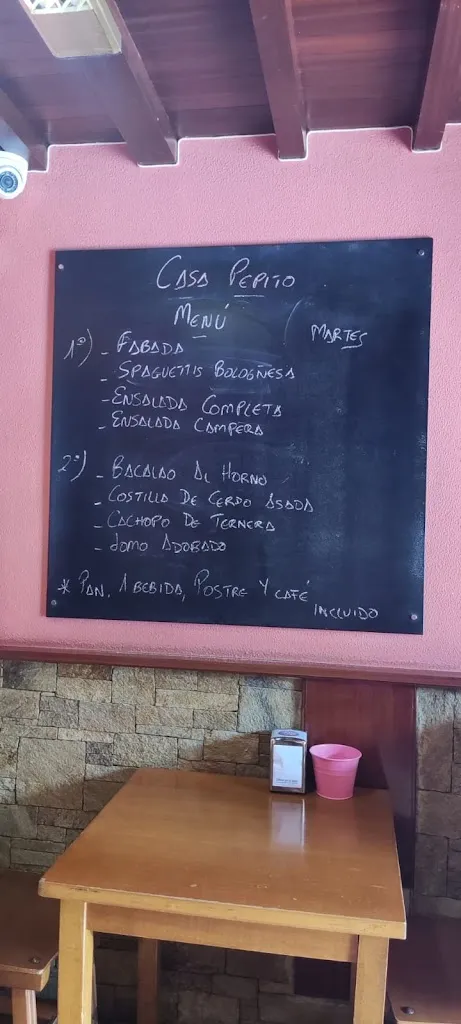 CASA PEPITO
MENÚ
MARTES
1º) - FABADA
- SPAGUETTIS BOLOGÑESA
- ENSALADA COMPLETA
- ENSALADA CAMPERA
2º) - BACALAO AL HORNO
- COSTILLA DE CERDO ASADA
- CACHOPO DE TERNERA
- LOMO ADOBADO
* PAN, 1 BEBIDA, POSTRE Y CAFÉ
INCLUIDO